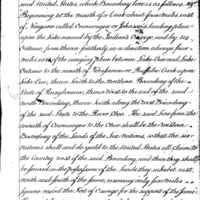 said United States, which Boundary line is as follows, viz
Beginning at the mouth of a Creek about four miles east
of Niagara called Oyonwayea or Johnston's Landing place
upon the Lake named by the Indians Oswego and by us
Ontario, from thence southerly in a direction always four
miles east of the carrying place between Lake Erie and Lake
Ontario to the mouth of Tehoseroron or Buffaloe Creek upon
Lake Erie, thence South to the Northern Boundary of the
State of Pennsylvania; thence West to the end of the said
north Boundary; thence South along the west Boundary
of the said State to the River Ohio. The said line from the
mouth of Oyonwayea to the Ohio shall be the Western
Boundary of the Lands of the Six Nations, so that the Six
Nations shall and do yield to the United States all Claim to
the Country west of the said Boundary, and then they shall
be secured in the possession of the Lands they inhabit east
north and south of the same, reserving only six miles
square round the Fort of Oswego for the support of the same